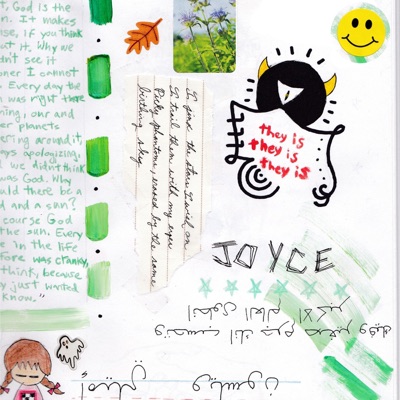 t, God is the
n. It makes
se, if you think
out it. Why we
dn't see it
oner I cannot
. Every day the
n was right there
ning, our and
er planets
ering around it,
ays apologizing,
we didn't think
was God. Why
uld there be a
d and a sun?
course God
the sun. Every
e in the life
fore was cranky,
think, because
y just wanted
know."
the stars I wish on
To trail them with my eyes
phantoms, scared by the same
birthing sky
they is
they is
they is
JOYCE
وتحسب انك جرم صغير وفيك
انطوى العالم الاكبر